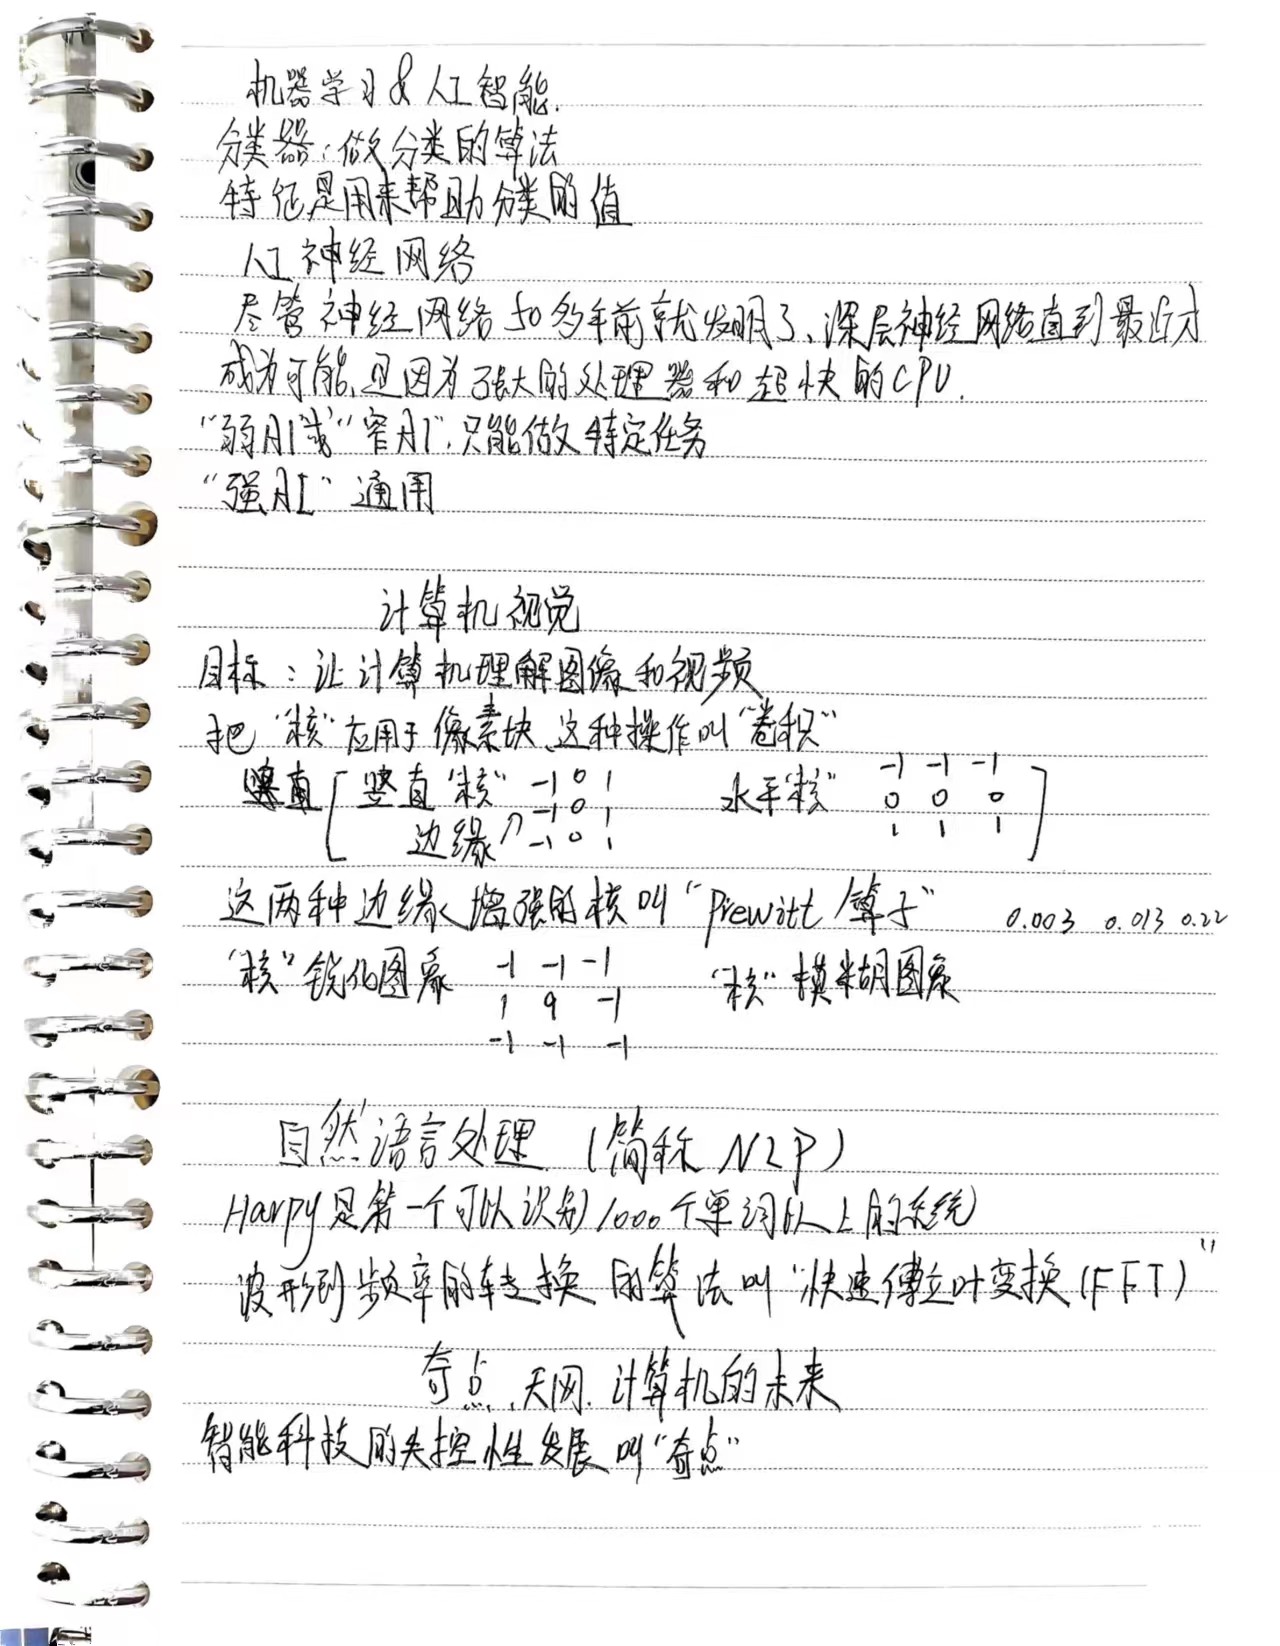 机器学习&人工智能.
分类器:做分类的算法
特征是用来帮助分类的值
人工神经网络
尽管神经网络50多年前就发明了、深层神经网络直到最近才
成为可能,是因为强大的处理器和超快的CPU.
“弱AI”或“窄AI”.只能做特定任务
“强AI” 通用
计算机视觉
目标:让计算机理解图像和视频
把“核”应用于像素块、这种操作叫“卷积”
竖直“核” -1 0 1 水平“核” -1 -1 -1
-1 0 1 0 0 0
边缘 -1 0 1 1 1 1
这两种边缘增强的核叫“Prewitt算子” 0.003 0.013 0.22
“核”锐化图象 -1 -1 -1 “核”模糊图象
1 9 -1
-1 -1 -1
自然语言处理 (简称NLP)
Harpy是第一个可以识别1000个单词以上的系统
波形到频率的转换 的算法叫“快速傅立叶变换(FFT)”
奇点、天网.计算机的未来
智能科技的失控性发展叫“奇点”